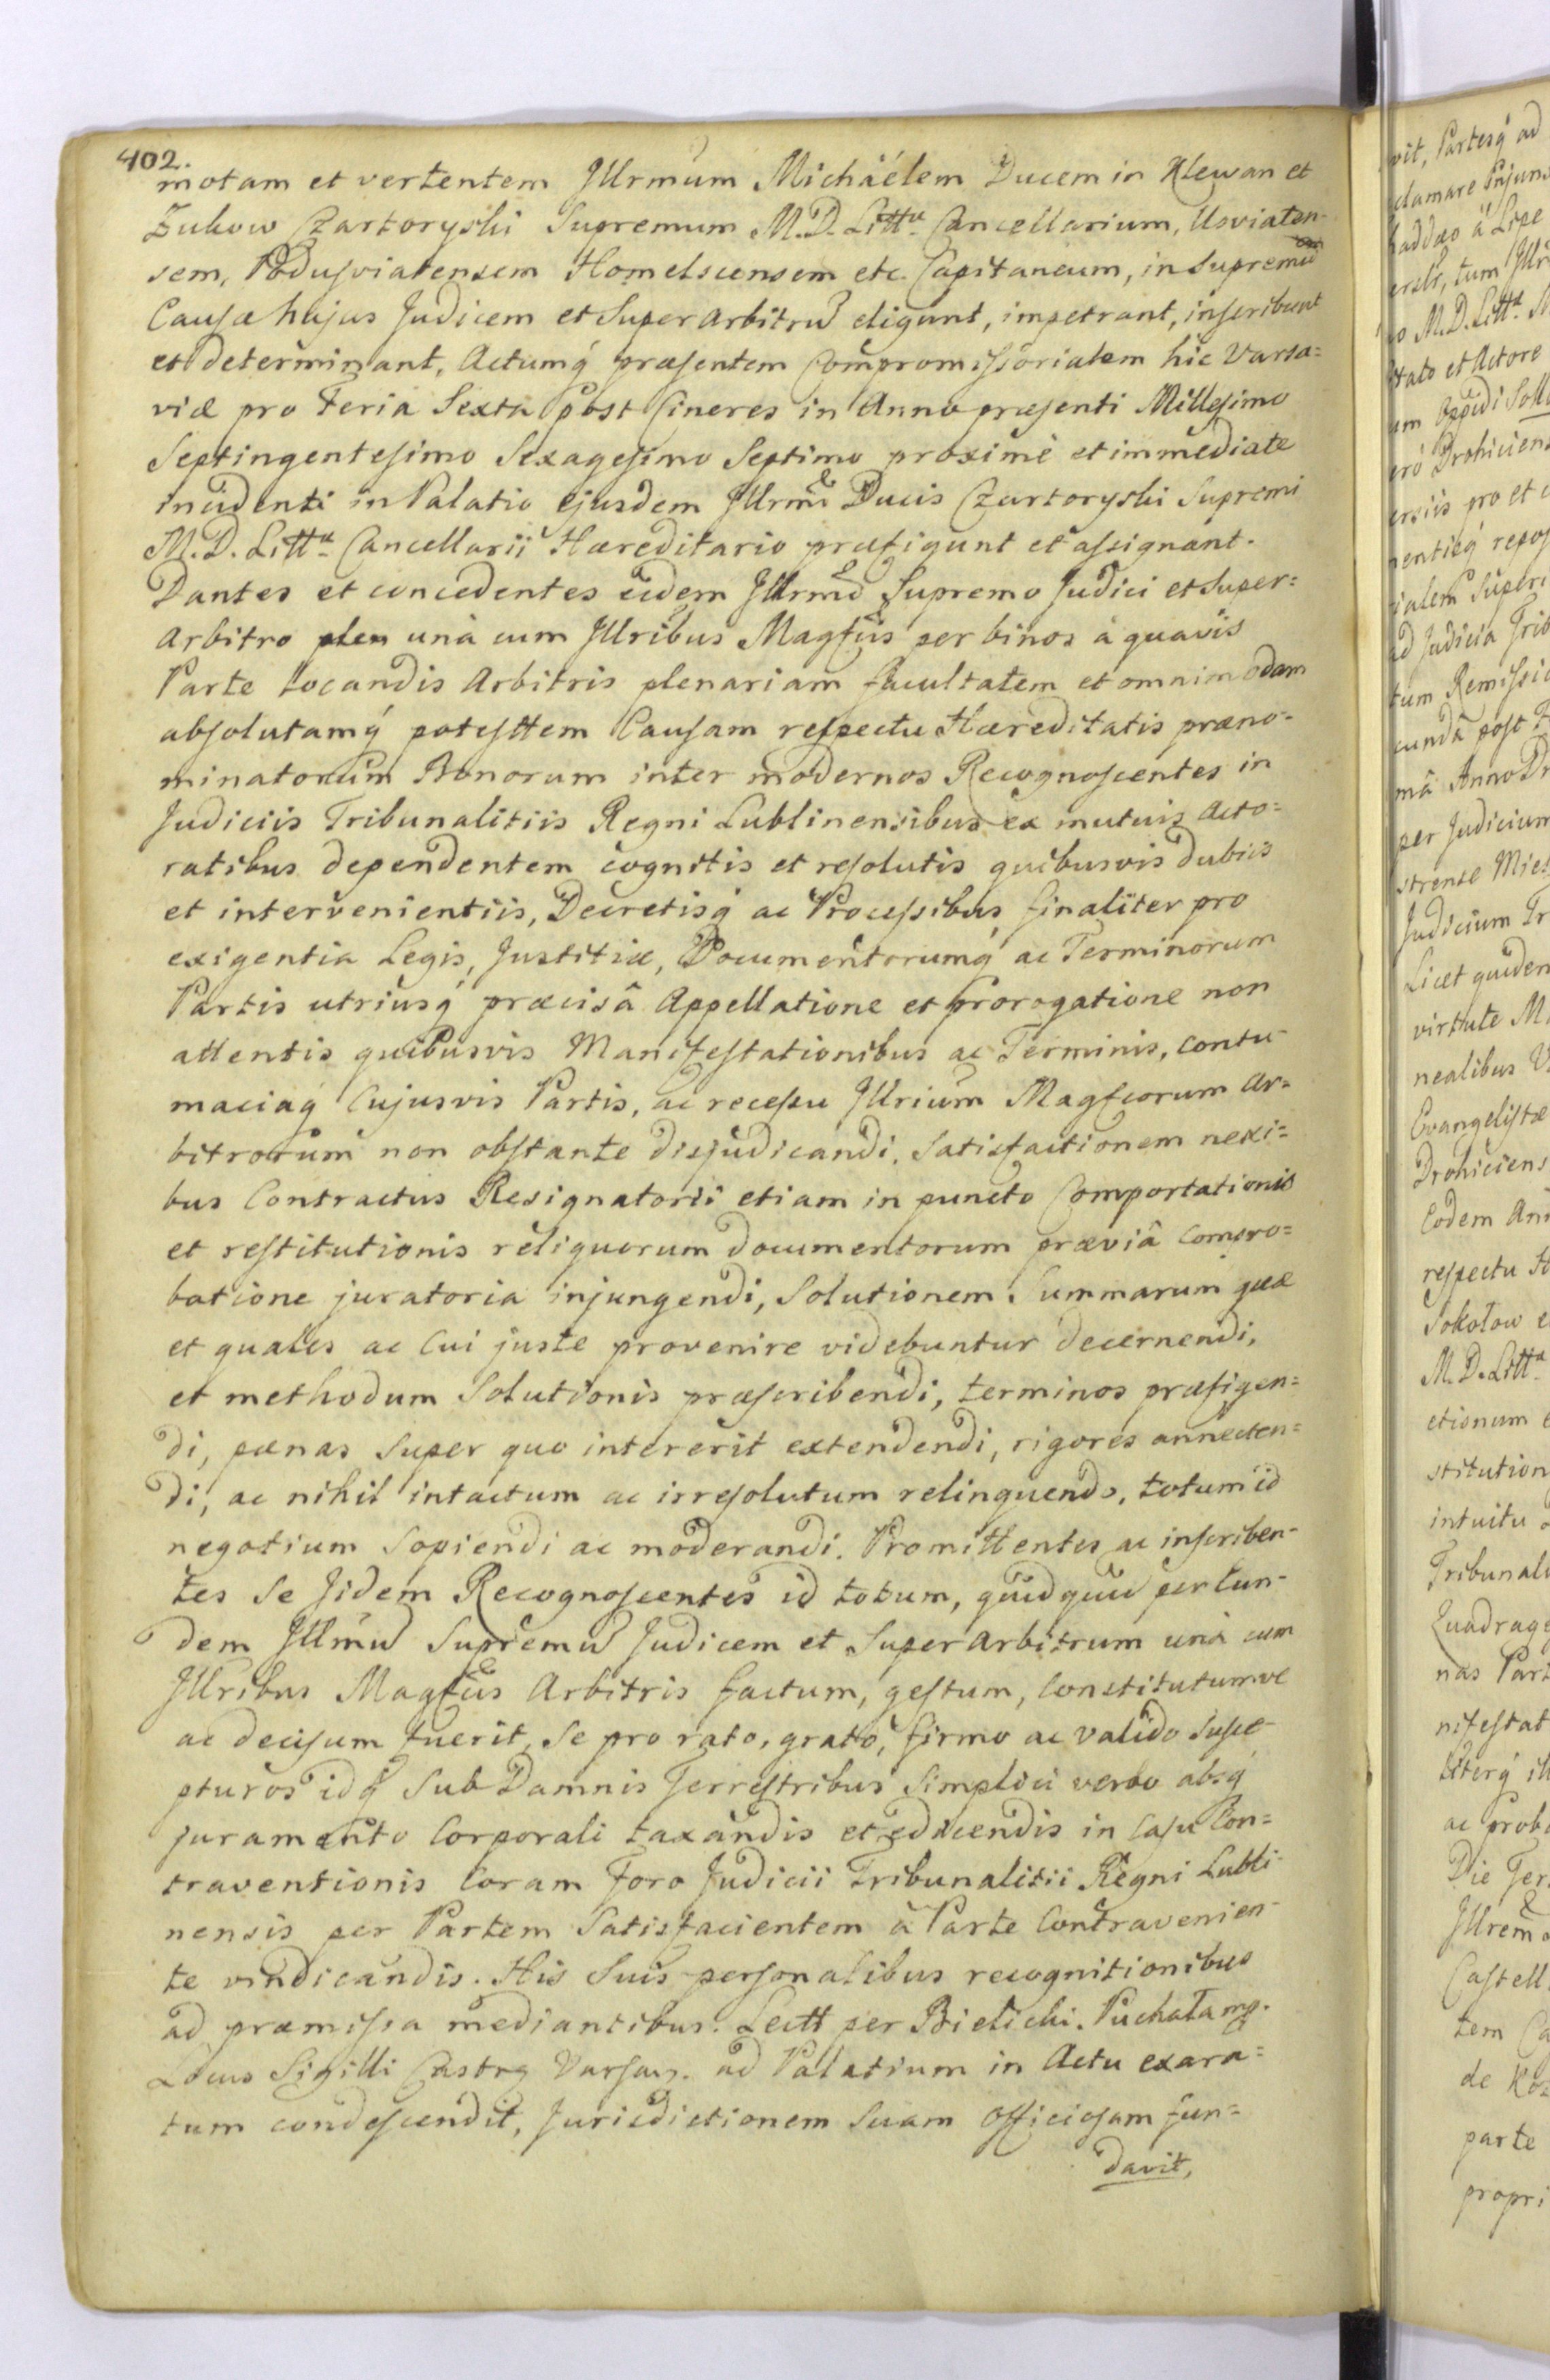 402.
motam et vertentem Jllrmum Michaélem Ducem in Klewan et
Zukow Czartoryski Supremum M. D. Littu Cancellarium, Usviaten-
sem, Podusviatensem Homelscensem etc. Capitaneum, in Supremū
Causæ hujus Judicem et Superarbitrū eligunt, impetrant, inscribunt
et determinant, Actumq́ præsentem Compromissorialem hic Varsa=
viæ pro Feria Sexta post Cineres in Anno præsenti Millesimo
Septingentesimo Sexagesimo Septimo proximè et immediate
incidenti in Palatio ejusdem Jllrmi Ducis Czartoryski Supremi
M. D. Littu Cancellarii Hæreditario præfigunt et assignant.
Dantes et concedentes eidem Jllrmo Supremo Judici et Super=
Arbitro plen unà cum Jllribus Magfcis per binos à quavis
Parte locandis Arbitris plenariam facultatem et omnimodam
absolutamq́ potesttem Causam respectu Hæreditatis præno-
minatorum Bonorum inter modernos Recognoscentes in
Judiciis Tribunalitiis Regni Lublinensibus ex mutuis Acto=
ratibus dependentem cognitis et resolutis quibusvis dubiis
et intervenientiis, Decretisq́ ac Processibus finaliter pro
exigentia Legis, Justitiæ, Documentorumq́ ac Terminorum
Partis utriusq́ præcisâ Appellatione et prorogatione non
attentis quibusvis Manifestationibus ac Terminis, contu-
maciaq́ Cujusvis Partis, ac recessu Jllrium Magfcorum Ar=
bitrorum non obstante disjudicandi, Satisfactionem nexi=
bus Contractus Resignatorii etiam in puncto Comportationis
et restitutionis reliquorum documentorum præviâ compro=
batione juratoria injungendi, Solutionem Summarum quæ
et quales ac Cui juste provenire videbuntur decernendi,
et methodum Solutionis præscribendi, terminos præfigen=
di, pænas Super quo intererit extendendi, rigores annecten=
di, ac nihil intactum ac irresolutum relinquendo, totum id
negotium Sopiendi ac moderandi. Promittentes ac inscriben-
tes Se Jidem Recognoscentes id totum, quidquid per Eun-
dem Jllmū Supremū Judicem et Superarbitrum unà cum
Jllribus Magfcis Arbitris factum, gestum, Constitutumve
ac decisum fuerit, Se pro rato, grato, firmo ac valido Susce-
pturos idq́ Sub Damnis Terrestribus Simplici verbo absq́
juramento Corporali taxandis et educendis in Casu Con=
traventionis Coram Foro Judicii Tribunalitii Regni Lubli-
nensis per Partem Satisfacientem à Parte Contravenien-
te vindicandis. His Suis personalibus recognitionibus
ad præmissa mediantibus. Lectt per Bielicki. Puchała mp.
Locus Sigilli Castrg Varsav. ad Palatium in Actu exara=
tum condescendit, Jurisdictionem Suam Officiosam fun=
davit,
vit, Partesq́ ad
clamare
à Lipe
tum
M. D. Litta
et Actore
um Oppidi
Drohiciens
pro et
repos
ialem Superi
Judicia Trib
tum Remissio
cundâ post
mâ Anno
per Judicium
strense
Judicium Tr
Licet quidem
virtute M.
nealibus V.
Evangelistæ
Drohiciens
Eodem Ann
respectu
Sokołow e
M. D. Litta
ctionum
stitution
intuitu
Tribunali
Quadrage
nas Part
nifestat
ac prob
Die Fer
Jllrem
Castell.
tem Ca
de
parte
propri